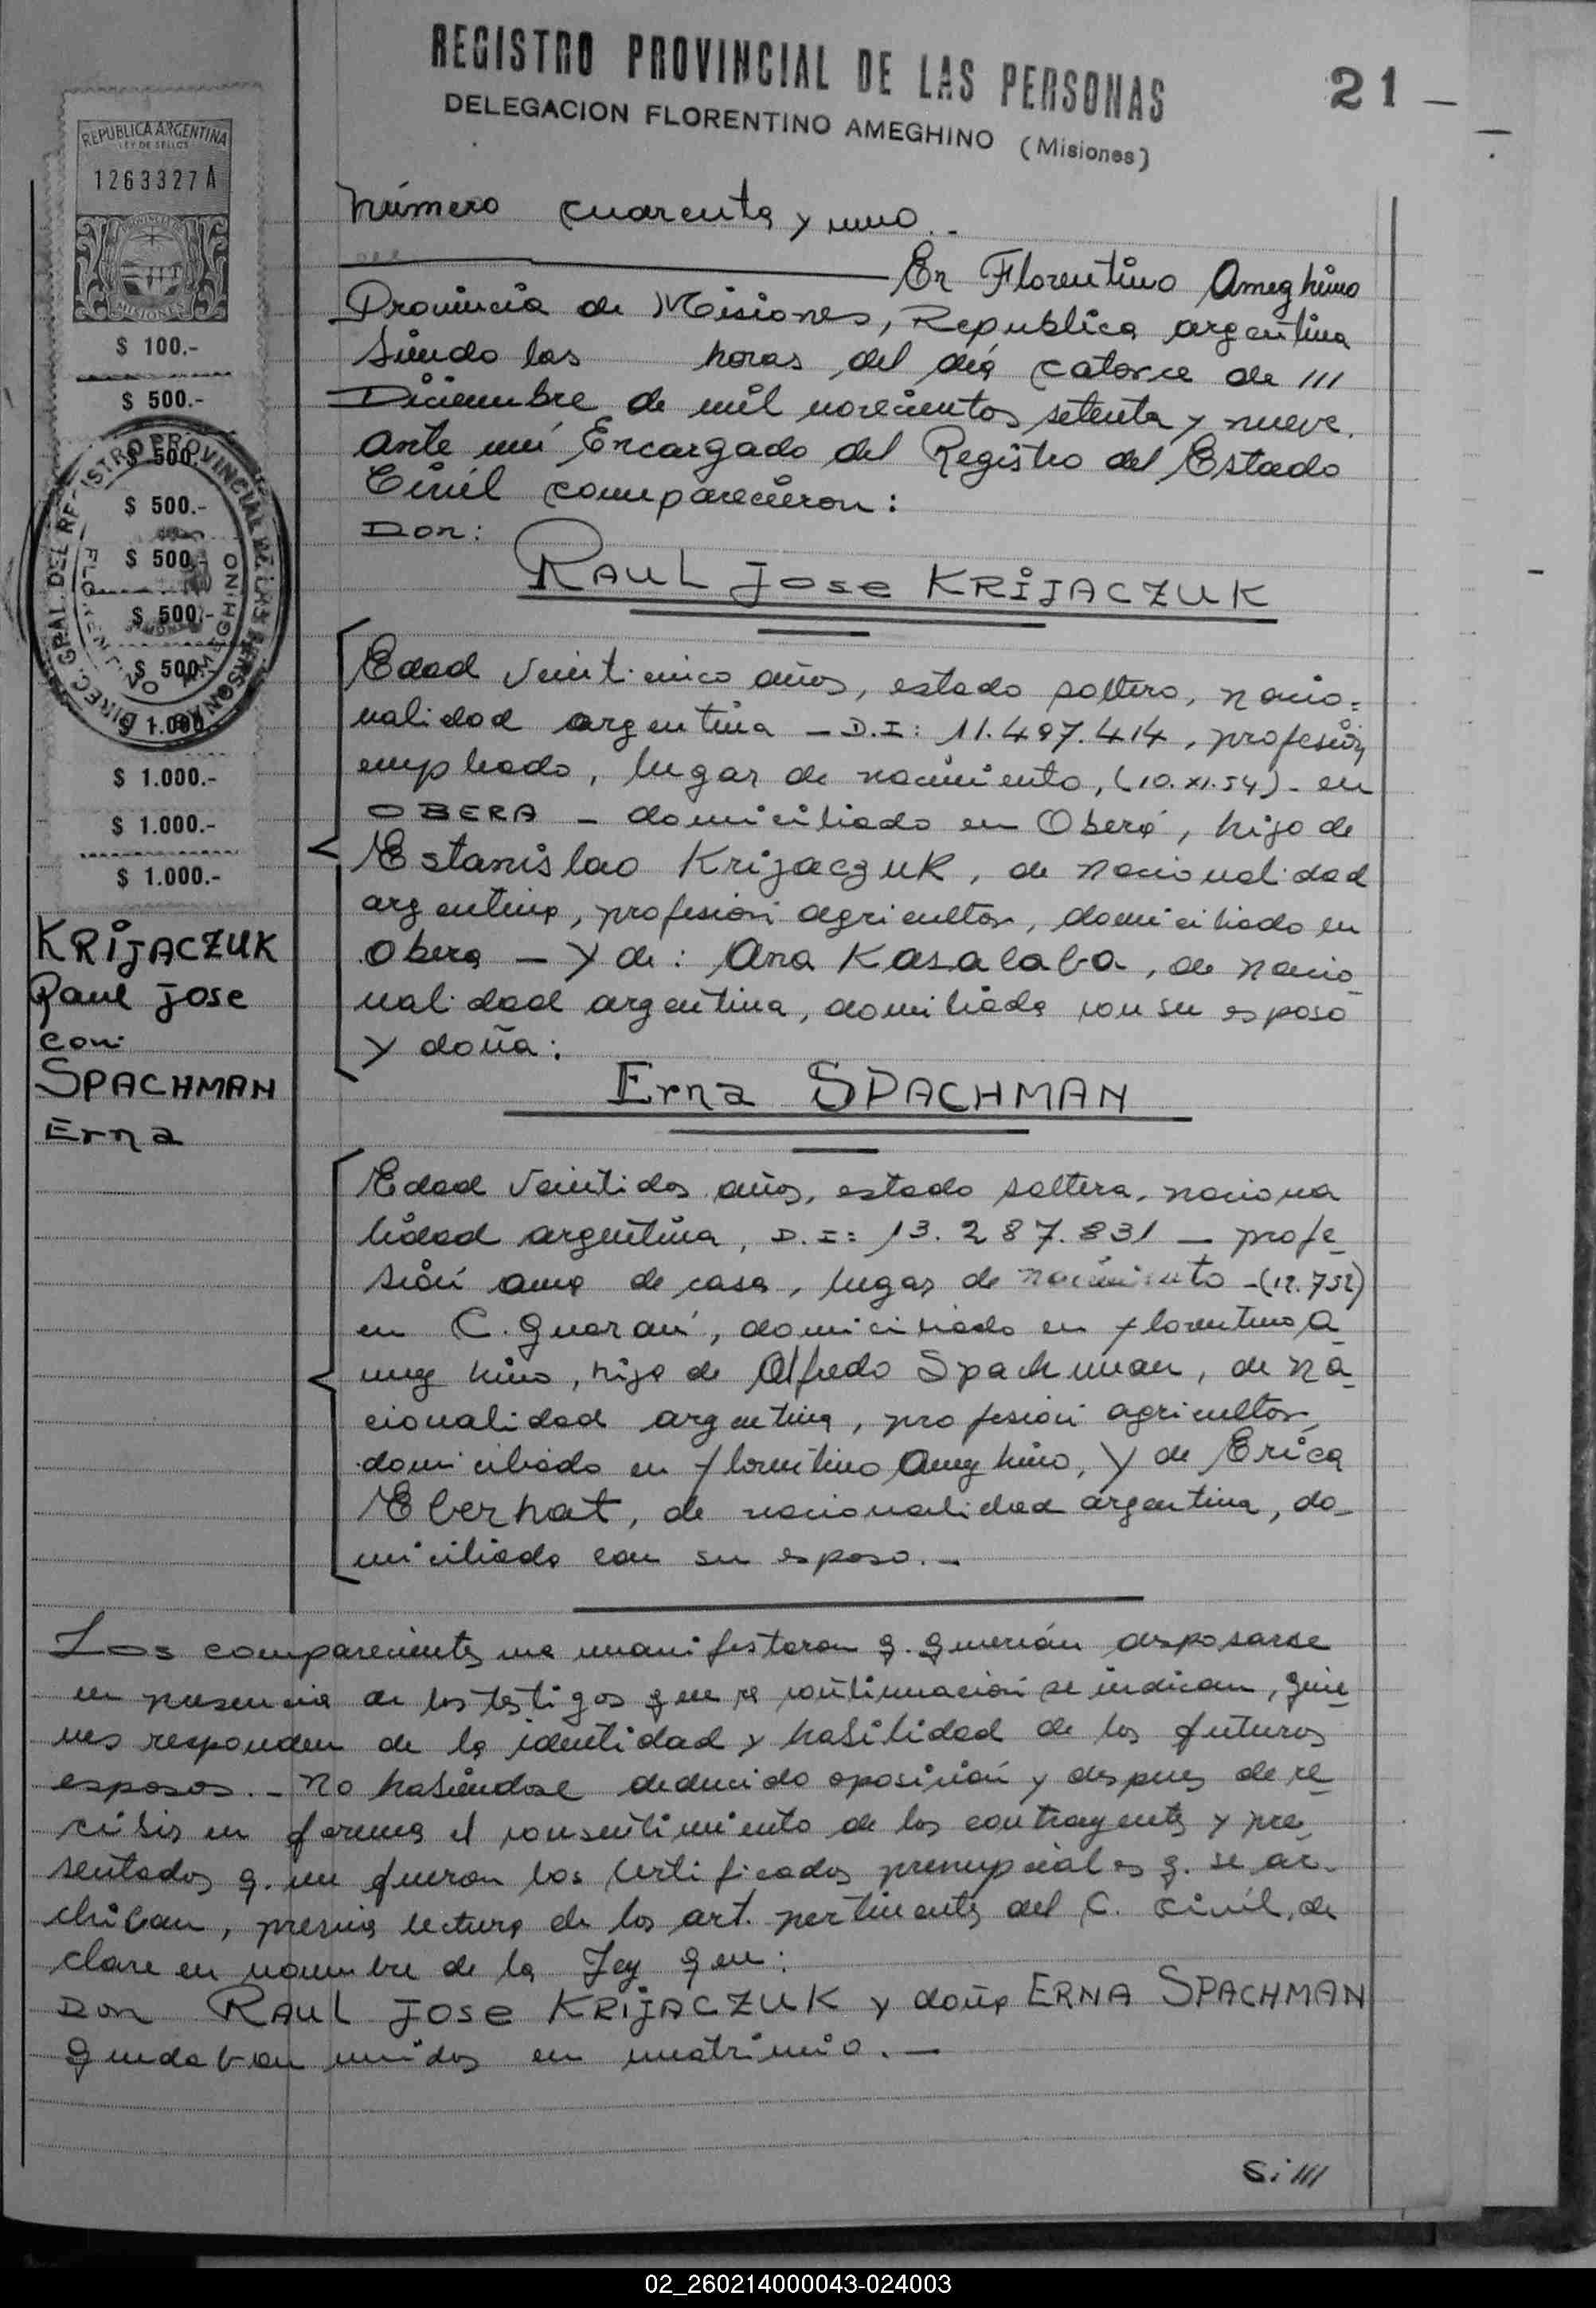 REGISTRO PROVINCIAL DE LAS PERSONAS
DELEGACION FLORENTINO AMEGHINO (Misiones)
21
REPUBLICA ARGENTINA
LEY DE SELLOS
1263327 A
MISIONES
$ 100.-
$ 500.-
$ 500.-
$ 500.-
$ 500.-
$ 500.-
$ 500.-
$ 1.000.-
$ 1.000.-
$ 1.000.-
$ 1.000.-
DIREC. GRAL. DEL REGISTRO PROVINCIAL DE LAS PERSONAS
FLORENTINO AMEGHINO
KRIJACZUK
Raul Jose
con:
SPACHMAN
Erna
Número cuarenta y uno..
En Florentino Ameghino
Provincia de Misiones, Republica argentina
siendo las horas del día catorce de ///
Diciembre de mil novecientos setenta y nueve.
ante mí Encargado del Registro del Estado
Civil comparecieron:
Don:
RAUL Jose KRIJACZUK
Edad veinticinco años, estado soltero, nacio=
nalidad argentina - D.I: 11.497.414, profesión
empleado, lugar de nacimiento, (10.XI.54)- en
OBERA - domiciliado en Oberá, hijo de
Estanislao Krijaczuk, de nacionalidad
argentina, profesión agricultor, domiciliado en
Obera - y de: Ana Kasalaba, de nacio-
nalidad argentina, domiliada con su esposo
y doña:
Erna SPACHMAN
Edad veintidos años, estado soltera, naciona
lidad argentina, D.I: 13.287.831 - profe-
sión ama de casa, lugar de nacimiento -
en C. Guaraní, domiciliada en florentino A-
meghino, hija de Alfredo Spachman, de na-
cionalidad argentina, profesión agricultor,
domiciliado en florentino Ameghino, y de Erica
Eberhat, de nacionalidad argentina, do-
miciliada con su esposo.-
Los comparecientes me manifestaron q. querían desposarse
en presencia de los testigos que a continuación se indican, quie-
nes responden de la identidad y habilidad de los futuros
esposos.- No habiéndose deducido oposición y despues de re-
cibir en forma el consentimiento de los contrayentes y pre-
sentados q. me fueron los certificados prenupciales q. se ar-
chiban, previa lectura de los art. pertinentes del C. Civil, de
claré en nombre de la Ley que:
Don RAUL Jose KRIJACZUK y doña ERNA SPACHMAN
quedaban unidos en matrimio.-
Si///
02_260214000043-024003